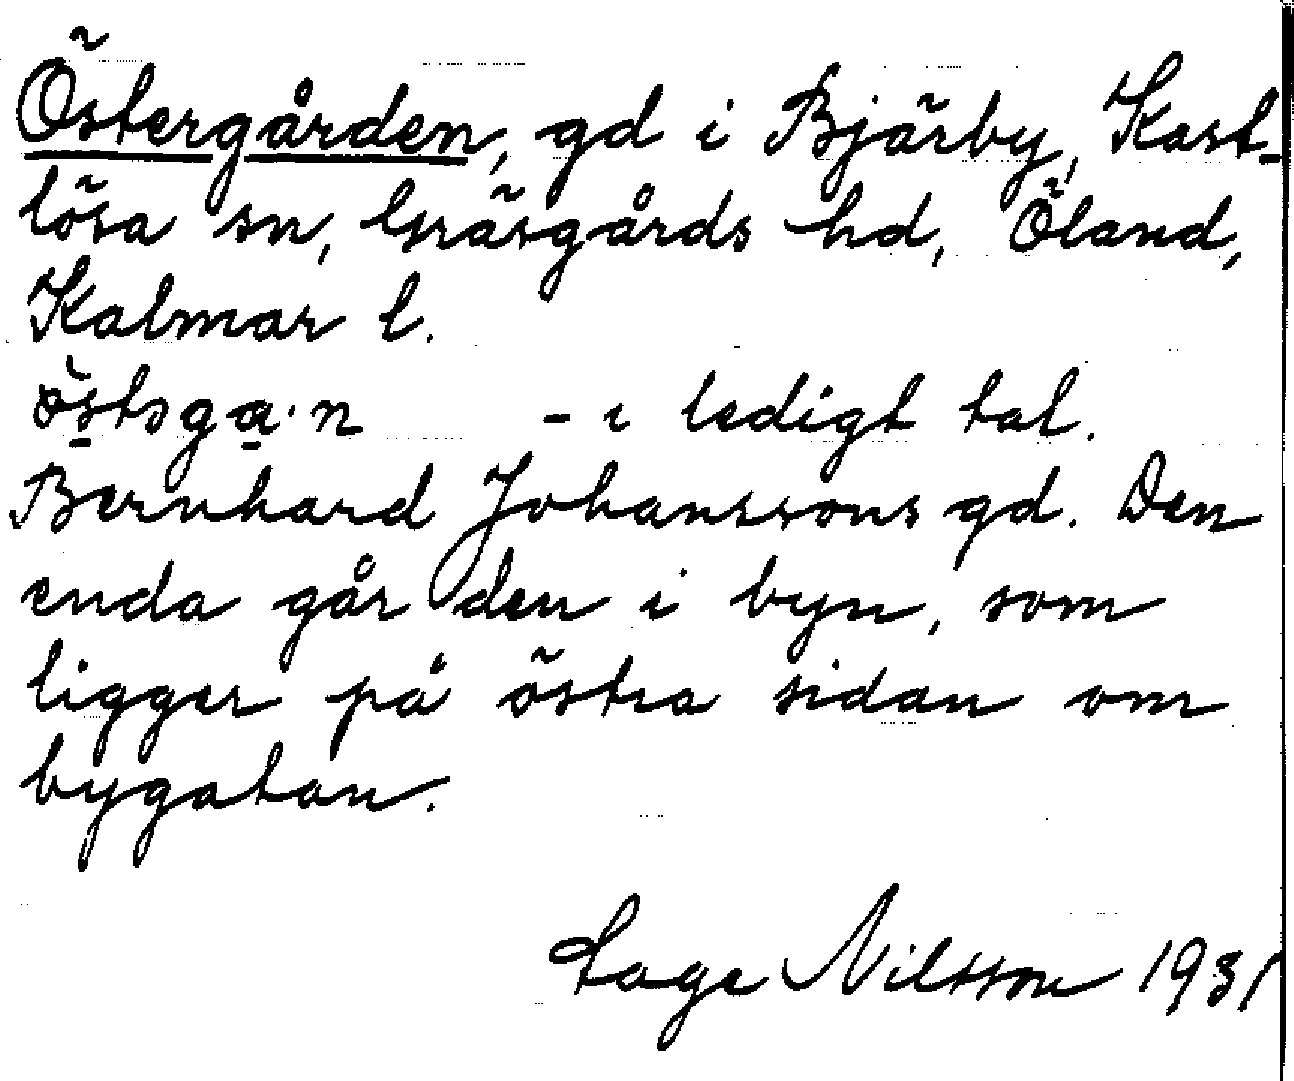 Östergården, gd i Bjärby, Kast-
lösa sn, Gräsgårds hd, Öland,
Kalmar l.
- i ledigt tal.
Bernhard Johanssons gd. Den
enda går den i byn, som
ligger på östra sidan om
bygatan.
Lage Nilsson 1931